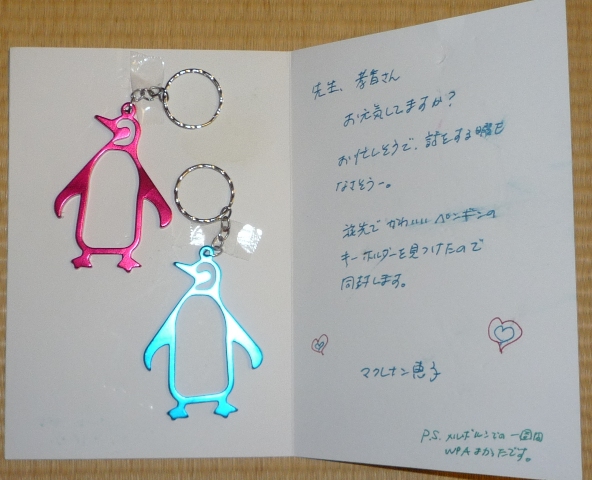 先生、孝昔さん
お元気してますか?
お忙しそうで、話をする
なさそうー。
旅先でかわいいペンギンの
キーホルダーを見つけたので
同封します。
マクレナン恵子
P.S. メルボルンでの一
WPA よかったです。